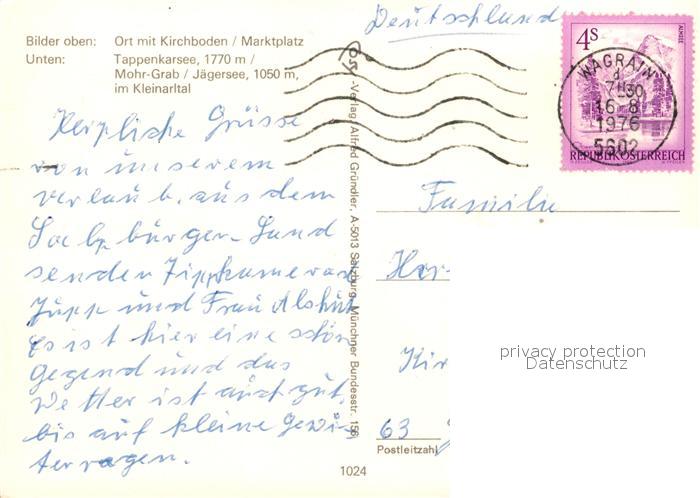 Bilder oben: Ort mit Kirchboden / Marktplatz
Unten: Tappenkarsee, 1770 m /
Mohr-Grab / Jägersee, 1050 m,
im Kleinarltal
Deutschland
4s
ALMSEE
WAGRAIN
d
7 30
16-8
1976
5602
REPUBLIK ÖSTERREICH
Herzliche Grüsse
von unserem
Verlaub. aus dem
Salzbürger-Land
senden Zippkamerad
Jupp und Frau
Es ist hier eine schön
Gegend und das
Wetter ist auch gut,
bis auf kleine Gewi-
terregen.
-Verlag Alfred Gründler, A-5013 Salzburg, Münchner Bundesstr. 156
Familie
Her
Kir
63
Postleitzahl
1024
privacy protection
Datenschutz